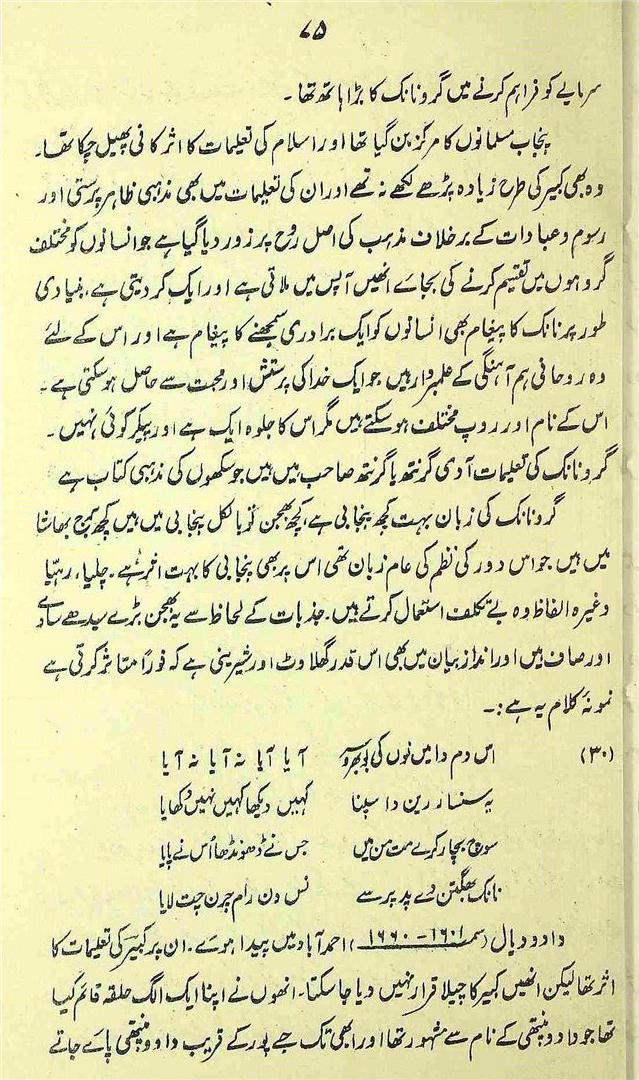 ۷۵
سرمایے کو فراہم کرنے میں گرو نانک کا بڑا ہاتھ تھا۔
پنجاب مسلمانوں کا مرکز بن گیا تھا اور اسلام کی تعلیمات کا اثر کافی پھیل چکا تھا۔
وہ بھی کبیر کی طرح زیادہ پڑھے لکھے نہ تھے اور ان کی تعلیمات میں بھی مذہبی ظاہر پرستی اور
رسوم و عبادات کے برخلاف مذہب کی اصل روح پر زور دیا گیا ہے جو انسانوں کو مختلف
گروہوں میں تقسیم کرنے کی بجاے انھیں آپس میں ملاتی ہے اور ایک کر دیتی ہے، بنیادی
طور پر نانک کا پیغام بھی انسانوں کو ایک برادری سمجھنے کا پیغام ہے اور اس کے لئے
وہ روحانی ہم آہنگی کے علمبردار ہیں جو ایک خدا کی پرستش اور محبت سے حاصل ہو سکتی ہے۔
اس کے نام اور روپ مختلف ہو سکتے ہیں مگر اس کا جلوہ ایک ہے اور پیکر کوئی نہیں۔
گرو نانک کی تعلیمات آدی گرنتھ یا گرنتھ صاحب میں ہیں جو سکھوں کی مذہبی کتاب ہے
گرو نانک کی زبان بہت کچھ پنجابی ہے، کچھ بھجن تو بالکل پنجابی میں ہیں کچھ برج بھاشا
میں ہیں جو اس دور کی نظم کی عام زبان تھی اس پر بھی پنجابی کا بہت اثر ہے۔ چلیا، رہیا
وغیرہ الفاظ وہ بے تکلف استعمال کرتے ہیں۔ جذبات کے لحاظ سے یہ بھجن بڑے سیدھے سادے
اور صاف ہیں اور انداز بیان میں بھی اس قدر گھلاوٹ اور شیرینی ہے کہ فوراً متاثر کرتی ہے
نمونہ کلام یہ ہے:۔
(۳۰) اس دم دا میں نوں کی بھروسہ آیا آیا نہ آیا نہ آیا
یہ سنسار رین دا سپنا کہیں دیکھا کہیں نہیں دکھایا
سوچ بچار کرے مت من میں جس نے ڈھونڈھا اُس نے پایا
نانک بھگتن دے پد پرسے نس دن رام چرن چت لایا
دادو دیال (سمـ ۱۶۰۱–۱۶۶۰) احمد آباد میں پیدا ہوے۔ ان پر کبیر کی تعلیمات کا
اثر تھا لیکن انھیں کبیر کا چیلا قرار نہیں دیا جا سکتا۔ انھوں نے اپنا ایک الگ حلقہ قائم کیا
تھا جو دادو پنتھی کے نام سے مشہور تھا اور ابھی تک جے پور کے قریب دادو پنتھی پاے جاتے